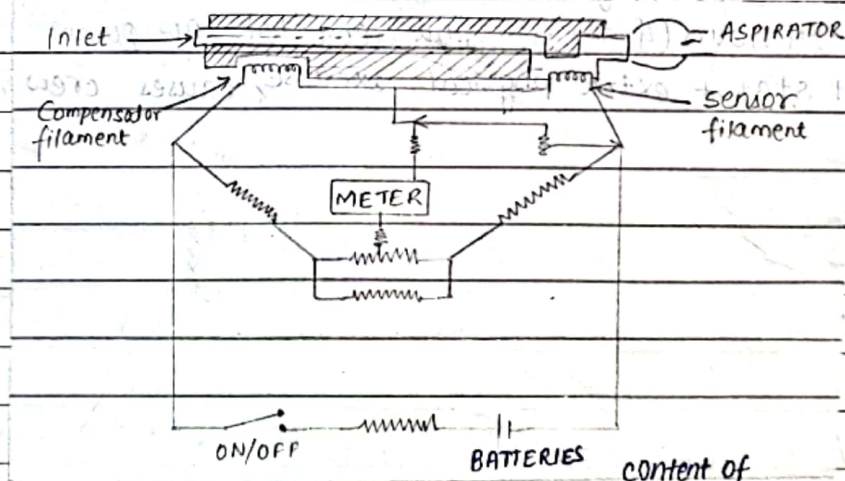 Inlet
ASPIRATOR
Compensator
filament
sensor
filament
METER
ON/OFF
BATTERIES
content of